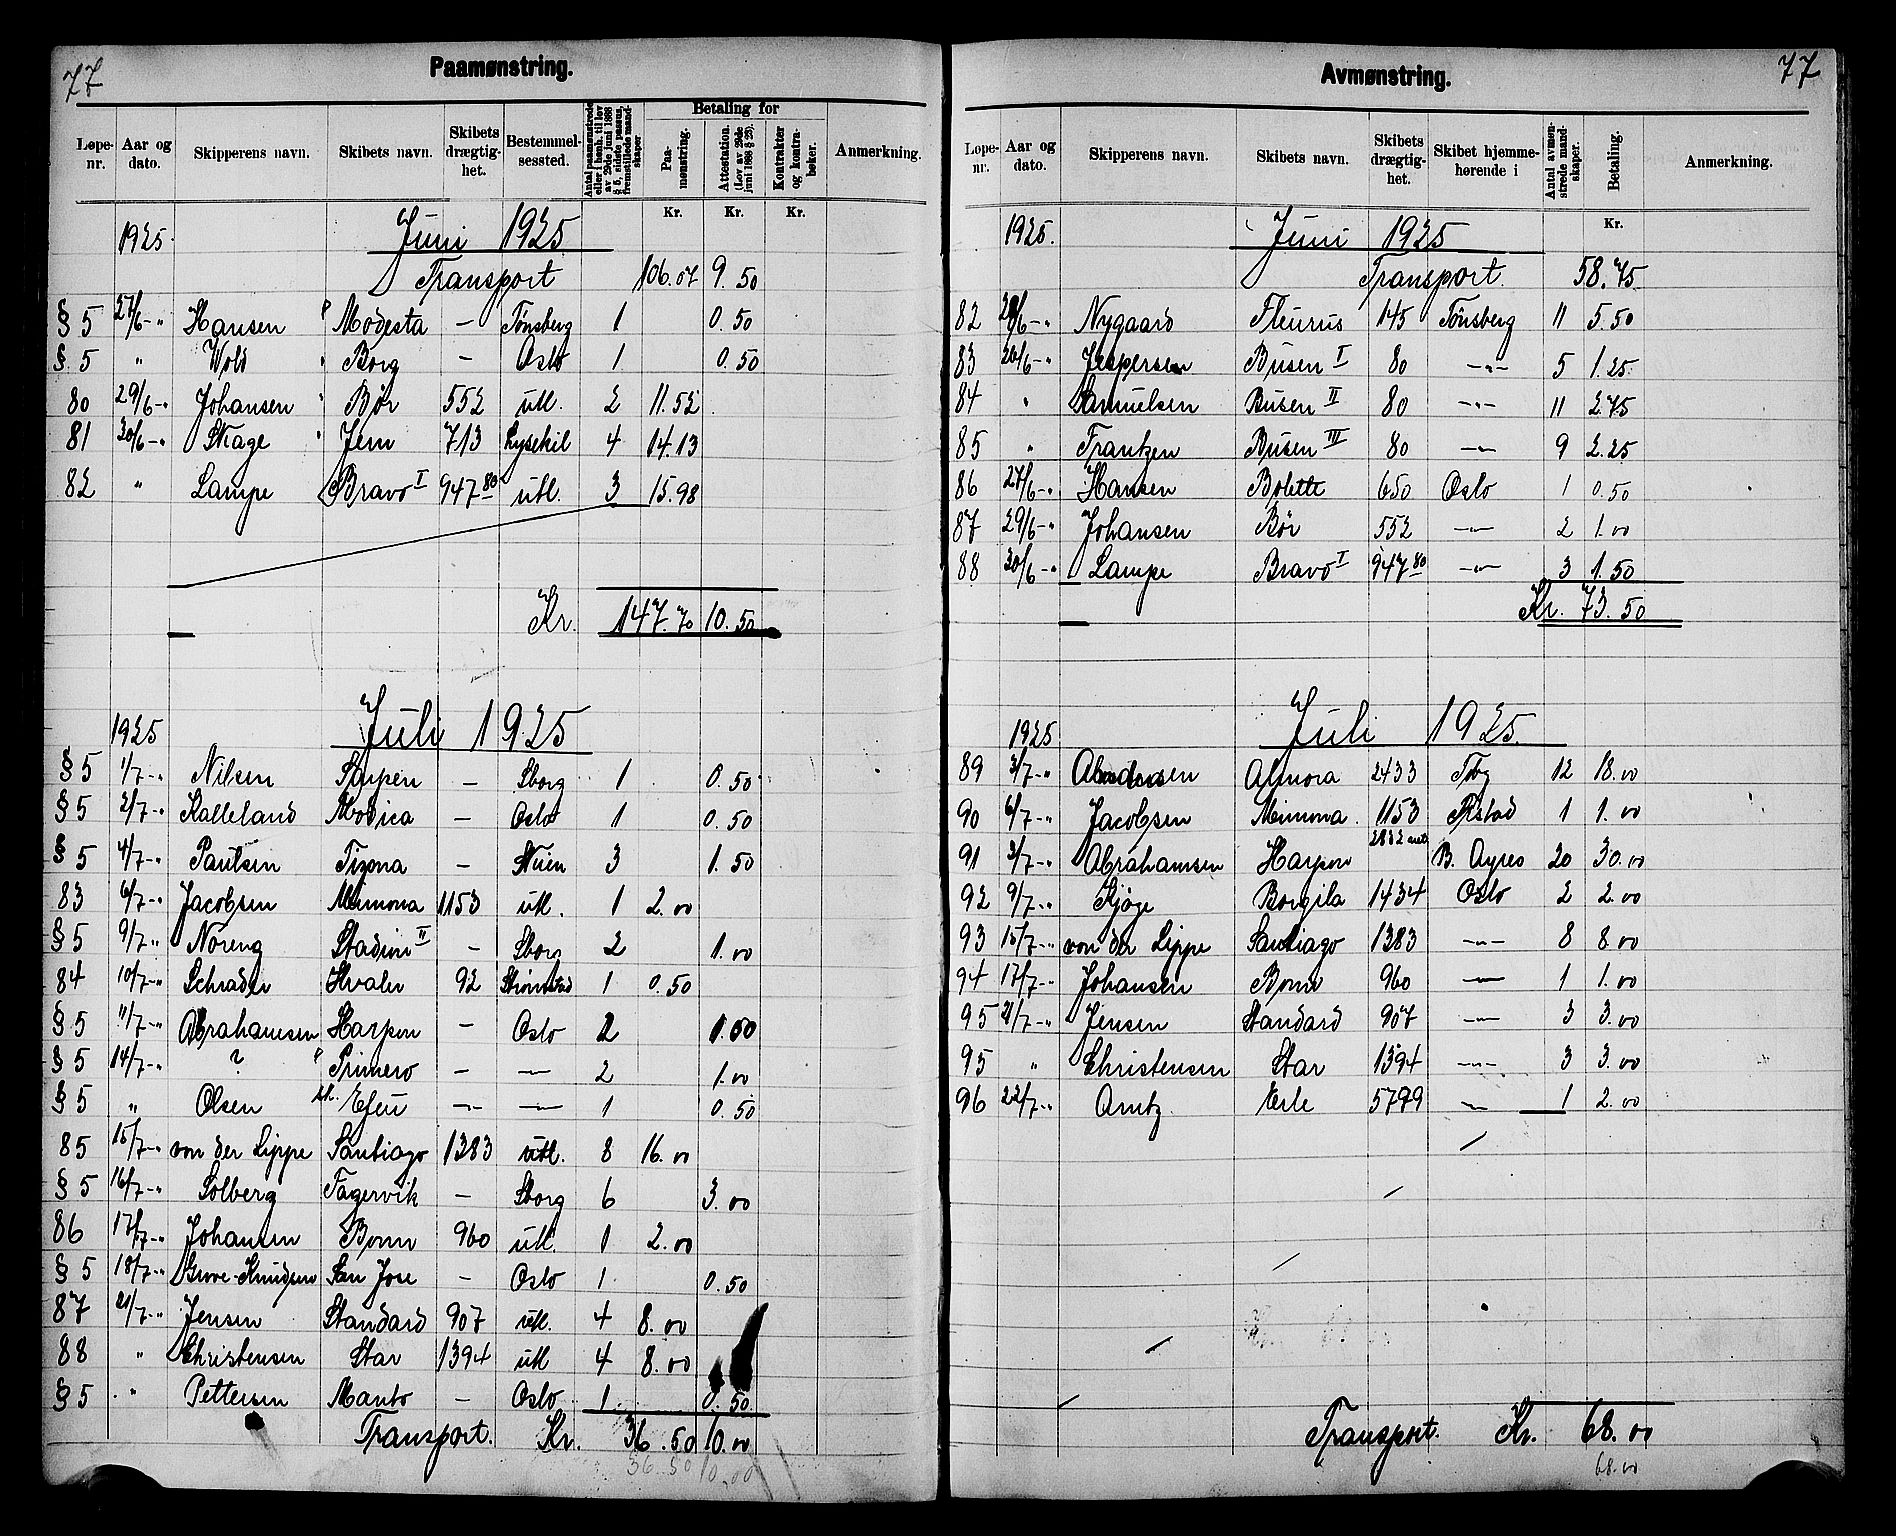 77
Paamønstring.
Løpe-nr. Aar og dato. Skipperens navn. Skibets navn. Skibets drægtig-het. Bestemmel-sessted. Antal paamønstrede eller i henh. til lov av 29de juni 1888 § 5, sidste passus, fremstillede mand-skaper Betaling for Paa-mønstring. Attestation. (Lov av 29de juni 1888 § 23). Kontrakter og kontra-bøker. Anmerkning.
Kr. Kr. Kr.
1925. Juni 1925
Transport 106.07 9.50
§ 5 27/6 -„ Hansen Modesta — Tønsberg 1 0.50
§ 5 „ Wold Borg — Oslo 1 0.50
80 29/6 -„ Johansen Bør 552 utl. 2 11.52
81 30/6 -„ Skage Jem 713 Lysekil 4 14.13
82 „ Lampe Bravo I 947 80 utl. 3 15.98
Kr. 147.70 10.50
1925 Juli 1925
§ 5 1/7 -„ Nilsen Sarpen — Sborg 1 0.50
§ 5 2/7 -„ Kalleland Modica — Oslo 1 0.50
§ 5 4/7 -„ Paulsen Tizona — 3 1.50
83 6/7 -„ Jacobsen Mimona 1153 utl. 1 2.00
§ 5 9/7 „ Noreng Stadion II — Sborg 2 1.00
84 10/7 -„ Schrader Hvaler 92 Strömstad 1 0.50
§ 5 11/7 -„ Abrahamsen Harpon — Oslo 2 1.00
§ 5 14/7 -„ ? Primero — —„— 2 1.00
§ 5 „ Olsen Efeu —„— —„— 1 0.50
85 15/7 -„ von der Lippe Santiago 1383 utl. 8 16.00
§ 5 16/7 -„ Solberg Fagervik — Sborg 6 3.00
86 17/7 -„ Johansen Bonn 960 utl. 1 2.00
§ 5 18/7 -„ Greve-Knudsen San Jose — Oslo 1 0.50
87 21/7 -„ Jensen Standard 907 utl. 4 8.00
88 „ Christensen Star 1394 utl 4 8.00
§ 5 „ Pettersen Manto — Oslo 1 0.50
Transport. Kr. 36.50 10.00
36.50 10.00
77
Avmønstring.
Løpe-nr. Aar og dato. Skipperens navn. Skibets navn. Skibets drægtig-het. Skibet hjemme-hørende i Antal avmøn-strede mand-skaper. Betaling. Anmerkning.
Kr.
1925. Juni 1925
Transport. 58.75
82 /6 -„ Nygaard Fleurus 145 Tönsberg 11 5.50
83 26/6 -„ Jespersen Busen I 80 —„— 5 1.25
84 „ Samuelsen Busen II 80 —„— 11 2.75
85 „ Frantzen Busen III 80 —„— 9 2.25
86 27/6 -„ Hansen Bolette 650 Oslo 1 0.50
87 29/6 -„ Johansen Bør 552 —„— 2 1.00
88 30/6 -„ Lampe Bravo I 947 80 —„— 3 1.50
Kr. 73.50
1925 Juli 1925.
89 3/7 -„ Almora 2433 Tbg 12 18.00
90 6/7 -„ Jacobsen Mimona 1153 1 1.00
91 3/7 -„ Abrahamsen Harpon 2832 B. Ayres 20 30.00
92 9/7 -„ Kjöge Borgila 1434 Oslo 2 2.00
93 15/7 -„ von der Lippe Santiago 1383 —„— 8 8.00
94 17/7 -„ Johansen Bonn 960 —„— 1 1.00
95 21/7 -„ Jensen Standard 907 —„— 3 3.00
95 „ Christensen Star 1394 —„— 3 3.00
96 22/7 -„ Arntz Erle 5779 —„— 1 2.00
Transport. Kr. 68.00
68.00